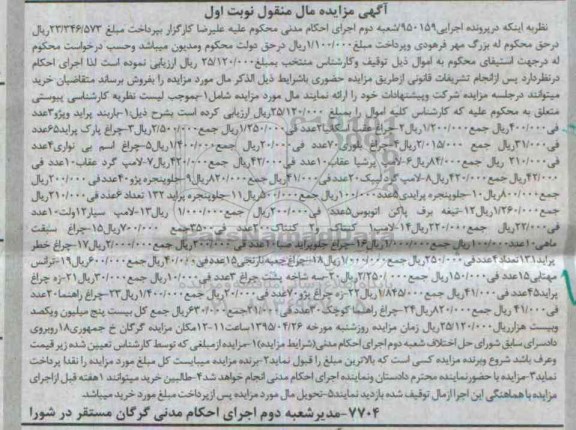 آگهی مزایده مال منقول نوبت اول
نظریه اینکه درپرونده اجرایی۹۵۰۱۵۹/شعبه دوم اجرای احکام مدنی محکوم علیه علیرضا کارگزار بپرداخت مبلغ ۲۳/۳۴۶/۵۷۳ریال
درحق محکوم له بزرگ مهر فرهودی وپرداخت مبلغ۱/۱۰۰/۰۰۰ریال درحق دولت محکوم ومدیون میباشد وحسب درخواست محکوم
له درجهت استیفای محکوم به اموال ذیل توقیف وکارشناس منتخب بمبلغ۲۵/۱۲۰/۰۰۰ریال ارزیابی نموده است لذا اجرای احکام
درنظردارد پس ازانجام تشریفات قانونی ازطریق مزایده حضوری باشرایط ذیل الذکر مال مورد مزایده را بفروش برساند متقاضیان خرید
میتوانند درجلسه مزایده شرکت وپیشنهادات خود را ارائه نمایند مال مورد مزایده شامل۱-بموجب لیست نظریه کارشناسی پیوستی
متعلق به محکوم علیه که کارشناس کلیه اموال را بمبلغ ۲۵/۱۲۰/۰۰۰ریال ارزیابی کرده است بشرح ذیل:۱-باربند پراید ویژه۳عدد
فی۴۰۰/۰۰۰ریال جمع۱/۲۰۰/۰۰۰ریال۲-چراغ ۲عدد فی۱/۲۵۰/۰۰۰ریال جمع۲/۵۰۰/۰۰۰ریال۳-چراغ پارک پراید۶۵عدد
فی۳۱/۰۰۰ریال جمع۲/۰۱۵/۰۰۰ریال۴-چراغ ۷۰عدد فی۲۰/۰۰۰ریال جمع۱/۴۰۰/۰۰۰ریال۵-چراغ اسم بی نواری۴عدد
فی۲۱۰/۰۰۰ ریال جمع۸۴۰/۰۰۰ریال۶-لامپ پرشیا عقاب۱۰عدد فی۴۲/۰۰۰ریال جمع۴۲۰/۰۰۰ریال۷-لامپ گرد عقاب۱۰عدد فی
۴۲/۰۰۰ریال جمع۴۲۰/۰۰۰ریال۸-لامپ گرد ۲۰عدد فی۴۱/۰۰۰ریال جمع۸۲۰/۰۰۰ریال۹-جلوپنجره پژو۴۰عدد فی۲۰۰/۰۰۰ریال
جمع۸۰۰/۰۰۰ریال۱۰-جلوپنجره پرایدی۵عدد فی۱۰۰/۰۰۰ریال جمع۵۰۰/۰۰۰ریال۱۱-جلوپنجره پراید ۱۳۲ تعداد ۶عدد فی۲۱۰/۰۰۰ریال
جمع۱/۲۶۰/۰۰۰ریال۱۲-تیغه برف پاکن اتوبوس۵عدد فی۲۰۰/۰۰۰ریال جمع۱/۰۰۰/۰۰۰ ریال۱۳-لامپ سیار۱۲ولت۱۰عدد
فی۲۲/۰۰۰ریال جمع۲۲۰/۰۰۰ریال۱۴-لامپ ۱کنتاک و۲ کنتاک۲۰۰عدد فی۳۵۰۰ جمع ۷۰۰/۰۰۰ریال۱۵-چراغ سقف
ماهی۱۰عدد۱۰۰/۰۰۰ریال جمع۱/۰۰۰/۰۰۰ریال۱۶-چراغ جلوپراید سبا۱۰عدد فی۲۰۰/۰۰۰ریال جمع۲/۰۰۰/۰۰۰ریال۱۷-چراغ خطر
پراید۱۳۱تعداد۴عددفی۲۵۰/۰۰۰ریال جمع۱/۰۰۰/۰۰۰ریال۱۸-چراغ جعبه نارنجی۱۵عددفی۴۰/۰۰۰ریال جمع۶۰۰/۰۰۰ریال۱۹-ترانس
مهتابی۱۵عدد فی۱۵۰/۰۰۰ریال جمع۲/۲۵۰/۰۰۰ریال۲۰-سه شاخه پشت چراغ ۳عدد فی۱۰/۰۰۰ریال جمع۳۰/۰۰۰ریال۲۱-زه چراغ
پراید۴۵عدد فی۴۱/۰۰۰ریال جمع۱/۸۴۵/۰۰۰ریال۲۲-زه چراغ پژو۷۰عدد فی۲۰/۰۰۰ریال جمع۱/۴۰۰/۰۰۰ریال۲۳-چراغ راهنما۲۰عدد
فی۴۱/۰۰۰ ریال جمع۸۲۰/۰۰۰ریال۲۴-چراغ راهنما کوچک۳۰عدد فی۲۱/۰۰۰ریال جمع۶۳۰/۰۰۰ریال جمع کل بیست پنج میلیون ویکصد
وبیست هزارریال۲۵/۱۲۰/۰۰۰ریال زمان مزایده روزشنبه مورخه ۱۳۹۵/۰۴/۲۶ساعت۱۱-۱۲مکان مزایده گرگان خ جمهوری۱۸روبروی
دادسرای سابق شورای حل اختلاف شعبه دوم اجرای احکام مدنی(شرایط مزایده)۱-مزایده ازمبلغی که توسط کارشناس تعیین شده زیر قیمت
وعرف باشد شروع وبرنده مزایده کسی است که بالاترین مبلغ را قبول نماید۲-برنده مزایده میبایست کل مبلغ مورد مزایده را نقدا پرداخت
نماید۳-مزایده با حضورنماینده محترم دادستان ونماینده اجرای احکام مدنی انجام خواهد شد۴-طالبین خرید میتوانند ۱هفته قبل ازاجرای
مزایده با هماهنگی این اجرا ازمال توقیف شده بازدید نمایند۵-تحویل مال مورد مزایده پس ازپرداخت مبلغ مورد خرید میباشد.
۷۷۰۴-مدیرشعبه دوم اجرای احکام مدنی گرگان مستقر در شورا